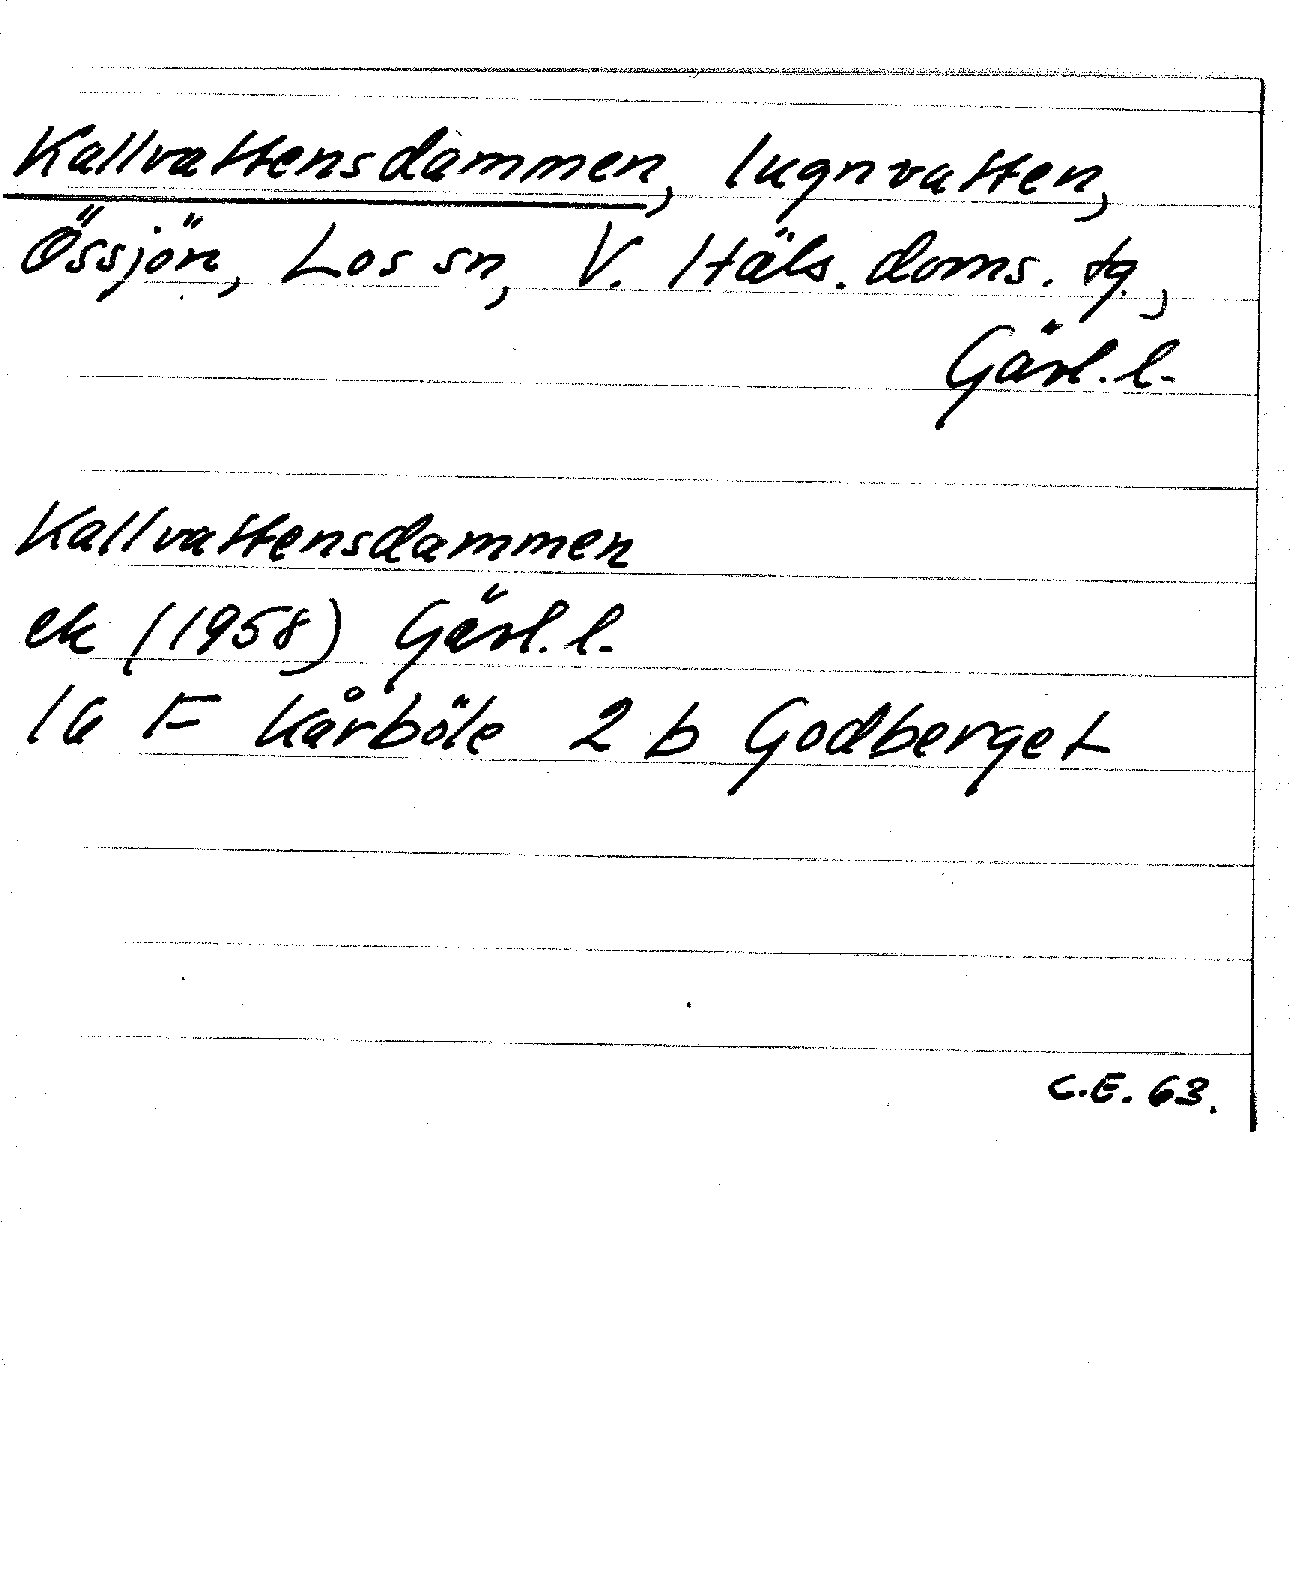 Kallvattensdammen, lugnvatten,
Össjön, Los sn, V. Häls. doms. tg.,
Gävl. l.
Kallvattensdammen
ek (1958) Gävl. l.
16 F Kårböle 2 b Godberget
C.E. 63.